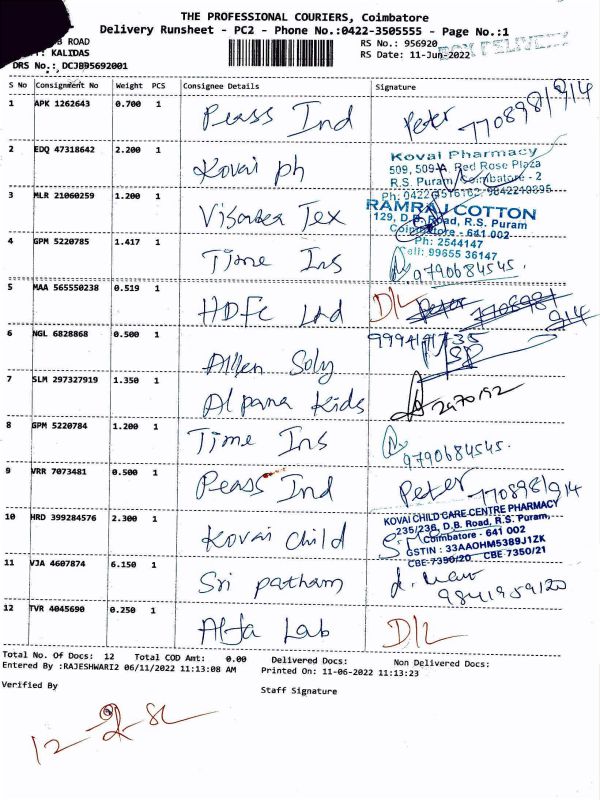 THE PROFESSIONAL COURIERS, Coimbatore
Delivery Runsheet - PC2 - Phone No.:0422-3505555 - Page No.:1
B ROAD
: KALIDAS
DRS No.: DCJB95692001
RS No.: 956920
RS Date: 11-Jun-2022
BOX DELIVERY
S No Consignment No Weight PCS Consignee Details Signature
1 APK 1262643 0.700 1 Peass Ind Peter 7708981914
2 EDQ 47318642 2.200 1 Kovai ph
Kovai Pharmacy
509, 509-A, Red Rose Plaza
R.S. Puram, Coimbatore - 2
3 MLR 21060259 1.200 1 Tex
RAMRAJ COTTON
129, D.B. Road, R.S. Puram
Coimbatore - 641 002
Ph: 2544147
Cell: 99655 36147
4 GPM 5220785 1.417 1 Time Ins 9790684545.
5 MAA 565550238 0.519 1 HDFC Ltd D/L Peter 7708981914
6 NGL 6828868 0.500 1 Allen Soly
7 SLM 297327919 1.350 1 Alpana Kids 2470192
8 GPM 5220784 1.200 1 Time Ins 9790684545.
9 VRR 7073481 0.500 1 Peass Ind Peter 7708981914
10 HRD 399284576 2.300 1 Kovai Child
KOVAI CHILD CARE CENTRE PHARMACY
235/236, D.B. Road, R.S. Puram,
Coimbatore - 641 002
GSTIN : 33AAOHM5389J1ZK
CBE-7350/20 CBE-7350/21
11 VJA 4607874 6.150 1 Sri patham 9841959120
12 TVR 4045690 0.250 1 Alfa Lab D/L
Total No. Of Docs: 12 Total COD Amt: 0.00 Delivered Docs: Non Delivered Docs:
Entered By :RAJESHWARI2 06/11/2022 11:13:08 AM Printed On: 11-06-2022 11:13:23
Verified By Staff Signature